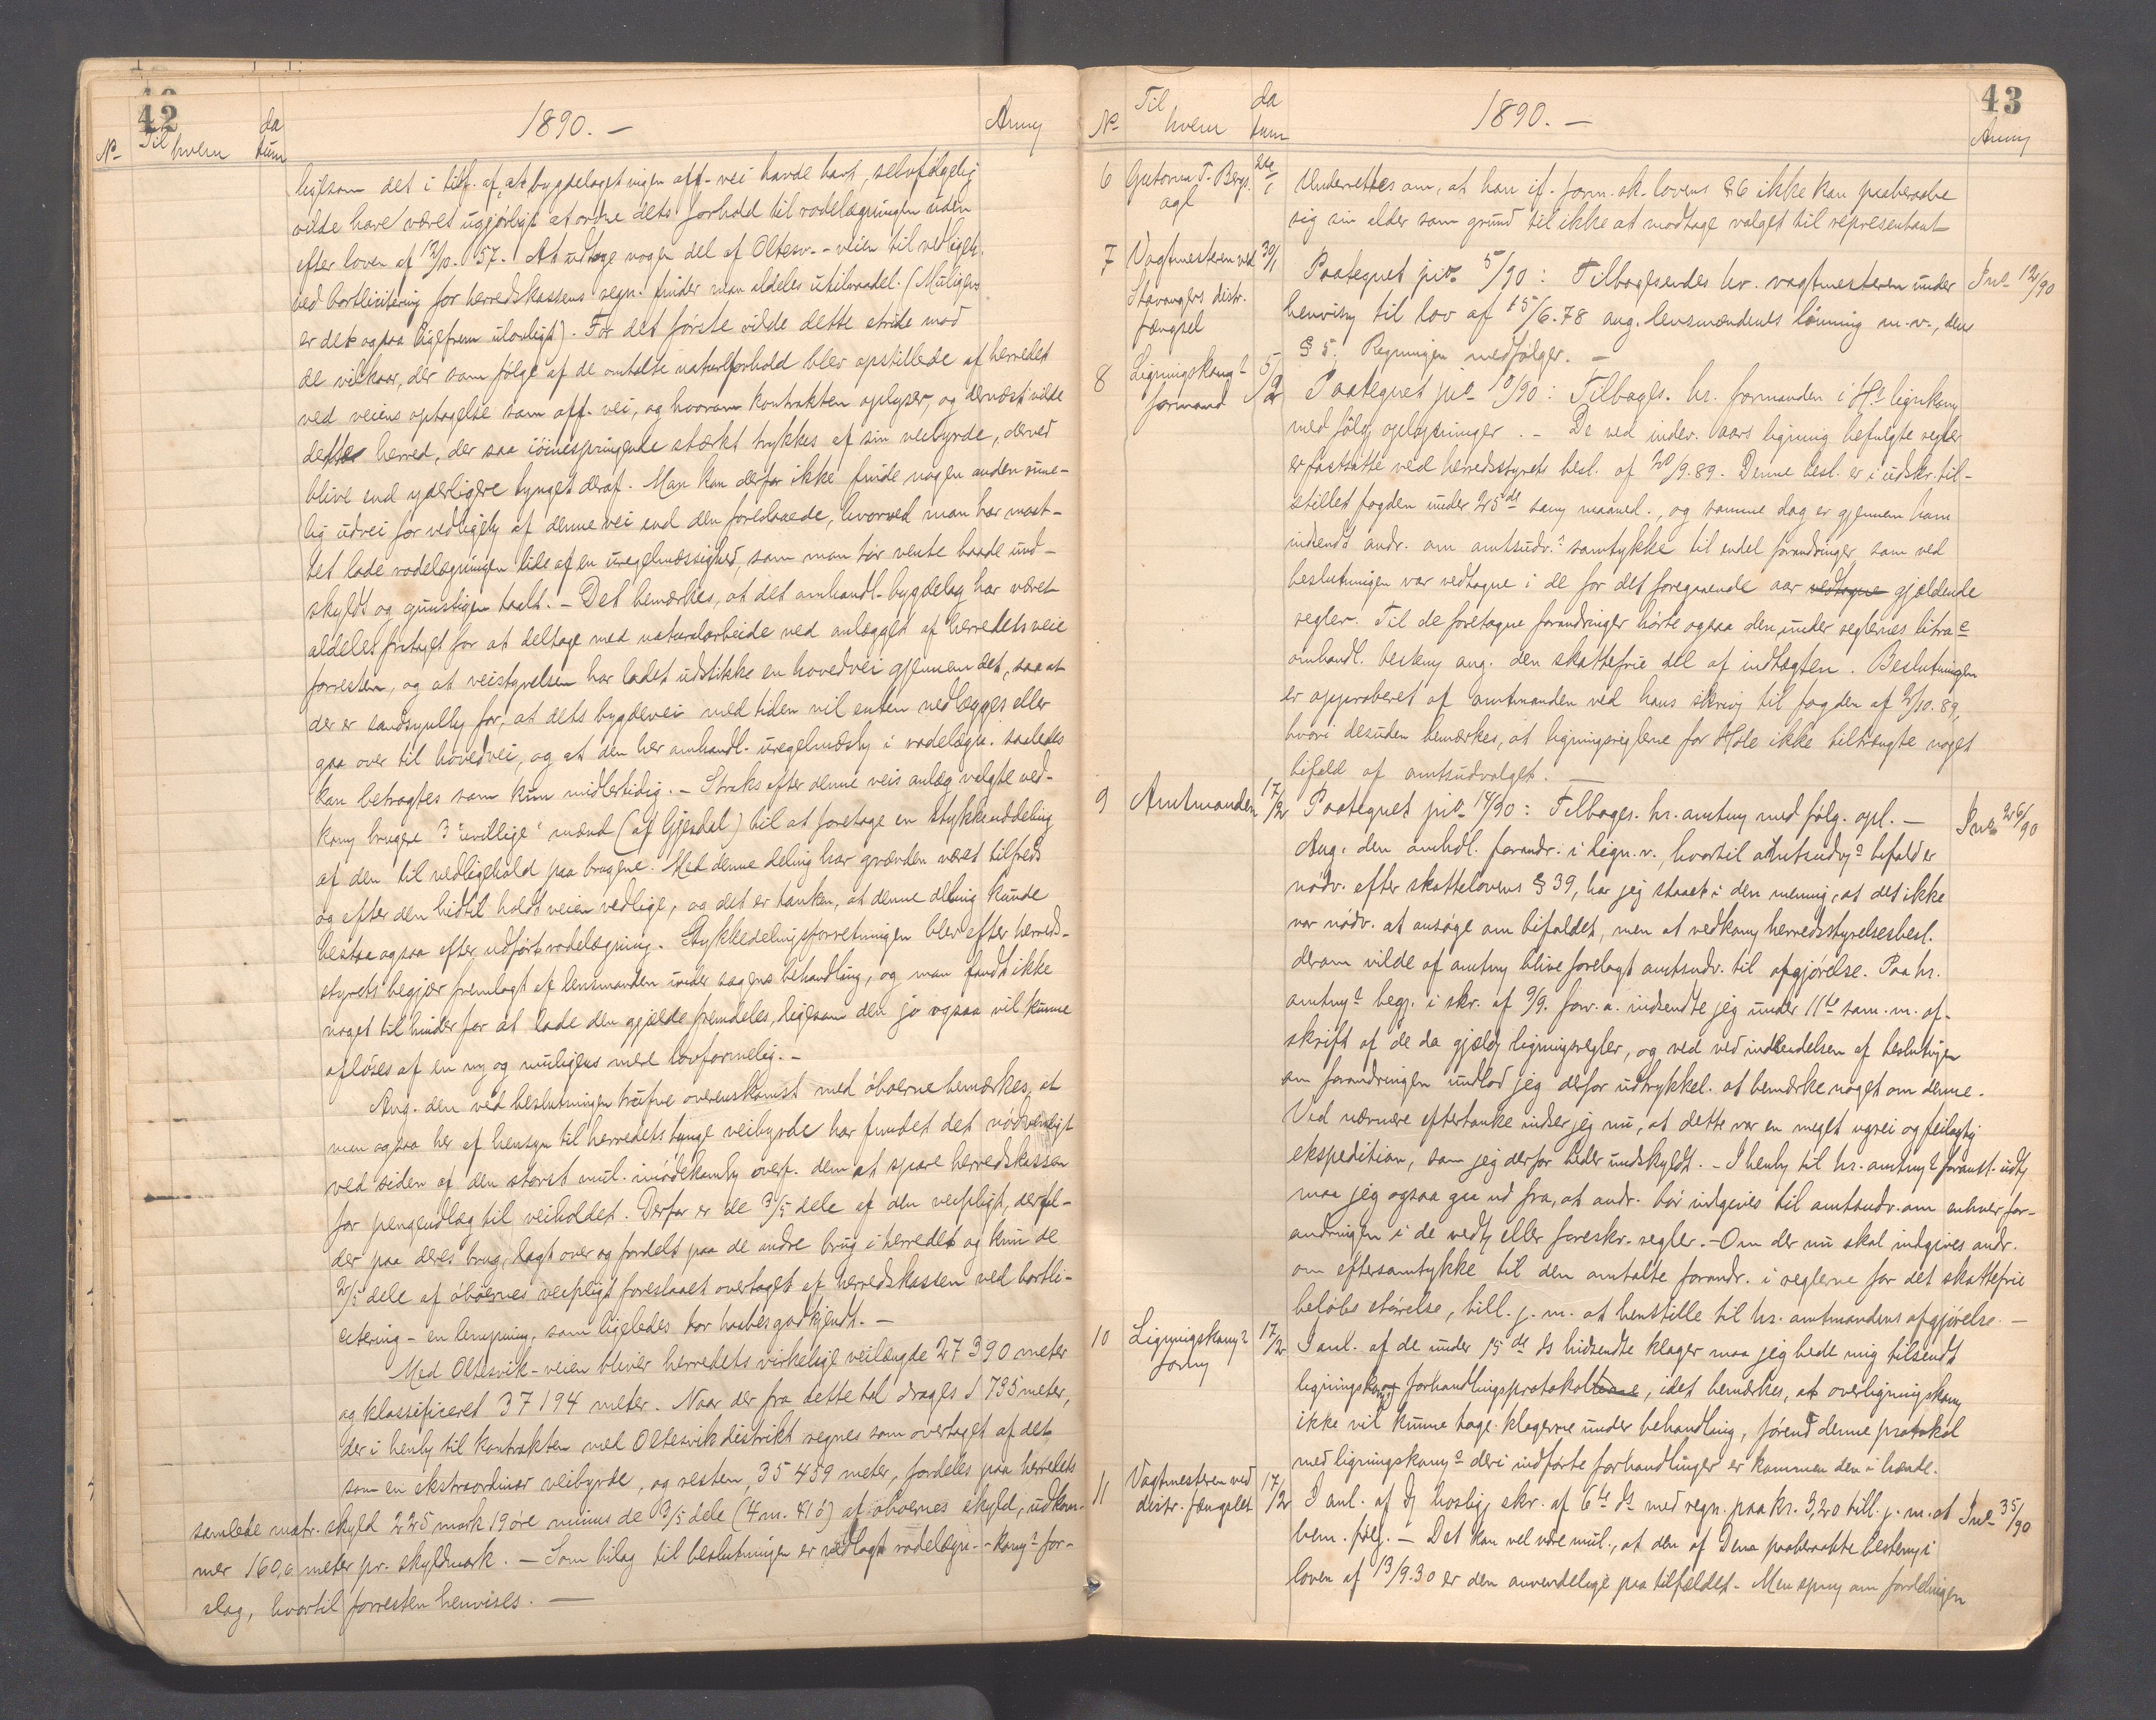 42
No Til hvem datum 1890. — Anm
ligesom det i tilf. af, at bygdelaget ingen off. vei havde havt, selvfølgelig
vilde have været ugjørligt at ordne dets forhold til rodelægningen uden
efter loven af 12/10. 57. At udtage nogen del af Oltesv.-veien til vedligeh.
ved bortlicitering for herredskassens regn. finder man aldeles utilraadel. (Muligens
er det ogsaa ligefrem ulovligt). For det første vilde dette stride mod
de vilkaar, der som følge af de omtalte naturforhold blev opstillede af herredet
ved veiens optagelse som off. vei, og hvorom kontrakten oplyser, og dernæst vilde
dette herred, der saa iøinespringende stærkt trykkes af sin veibyrde, derved
blive end yderligere tynget deraf. Man kan derfor ikke finde nogen anden rime-
lig udvei for vedligeh. af denne vei end den foreslaaede, hvorved man har maat-
tet lade rodelægningen lide af en uregelmæssighed, som man tør vente baade und-
skyldt og gunstigen taalt. – Det bemærkes, at det omhandl. bygdelag har været
aldeles fritaget for at deltage med naturalarbeide ved anlægget af herredets veie
forresten, og at veistyrelsen har ladet udstikke en hovedvei gjennem det, saa at
der er sandsynligh. for, at dets bygdevei med tiden vil enten nedlægges eller
gaa over til hovedvei, og at den her omhandl. uregelmæssigh. i rodelægn. saaledes
kan betragtes som kun midlertidig. – Straks efter denne veis anlæg valgte ved-
kom. brugere 3 "uvillige" mænd (af Gjesdal) til at foretage en stykkeuddeling
af den til vedligehold paa brugene. Med denne deling har grænden været tilfreds
og efter den hidtil holdt veien vedlige, og det er tanken, at denne deling kunde
bestaa ogsaa efter udført rodelægning. Stykkedelingsforretningen blev efter herreds-
styrets begjær fremlagt af lensmanden under sagens behandling, og man fandt ikke
noget til hinder for at lade den gjælde fremdeles, ligesom den jo ogsaa vil kunne
afløses af en ny og muligens mere lovformelig. –
Ang. den ved beslutningen trufne overenskomst med øboerne bemærkes, at
man ogsaa her af hensyn til herredets tunge veibyrde har fundet det nødvendigt
ved siden af den størst mul. imødekomh. overf. dem at spare herredskassen
for pengeudlæg til veiholdet. Derfor er de 3/5 dele af den veipligt, der fal-
der paa deres brug, lagt over og fordelt paa de andre brug i herredet og kun de
2/5 dele af øboernes veipligt foreslaaet overtaget af herredskassen ved bortli-
citering – en lempning, som ligeledes tør haabes godkjendt. –
Med Oltesvik-veien bliver herredets virkelige veilængde 27 390 meter
og klassificeret 37 194 meter. Naar der fra dette tal drages 1 735 meter,
der i henh. til kontrakten med Oltesvik distrikt regnes som overtaget af det
som en ekstraordinær veibyrde, og resten, 35 459 meter, fordeles paa herredets
samlede matr. skyld 225 mark 19 øre minus de 3/5 dele (4 m. 41 ø) af øboernes skyld, udkom-
mer 160,6 meter pr. skyldmark. – Som bilag til beslutningen er vedlagt rodelægn.-kom.s for-
slag, hvortil forresten henvises. —
43
No Til hvem datum 1890. — Anm
6 Guttorm T. Berge agl 24/1 Underrettes om, at han if. form. sk. lovens § 6 ikke kan paaberaabe
sig sin alder som grund til ikke at modtage valget til repræsentant
7 Vagtmesteren ved Stavangers distr. fængsel 30/1 Paategnet jno 5/90: Tilbagesendes hr. vagtmesteren under Jno 12/90
henvisn. til lov af 15/6.78 ang. lensmændenes lønning m.v., dens
§ 5. Regningen medfølger. –
8 Ligningskom.s formand 5/2 Paategnet jno 10/90: Tilbages. hr. formanden i H.s lignkom.
med følg. oplysninger. – De ved indev. aars ligning befulgte regler
er fastsatte ved herredsstyrets besl. af 20/9.89. Denne besl. er i udskr. til-
stillet fogden under 25de samme maaned., og samme dag er gjennem ham
indsendt andr. om amtsudv.s samtykke til endel forandringer, som ved
beslutningen var vedtagne i de for det foregaaende aar vedtagne gjældende
regler. Til de foretagne forandringer hørte ogsaa den under reglernes litra c
omhandl. bestem. ang. den skattefrie del af indtægten. Beslutningen
er approberet af amtmanden ved hans skriv. til fogden af 2/10.89,
hvori desuden bemærkes, at ligningsreglerne for Hole ikke tiltrængte noget
bifald af amtsudvalget. —
9 Amtmanden 17/2 Paategnet jno 14/90: Tilbages. hr. amtm. med følg. opl. — Jno 26/90
Ang. den omhdl. forandr. i lign.r., hvortil amtsudv.s bifald er
nødv. efter skattelovens § 39, har jeg staaet i den mening, at det ikke
var nødv. at ansøge om bifaldet, men at vedkom. herredsstyrelsesbesl.
derom vilde af amtm. blive forelagt amtsudv. til afgjørelse. Paa hr.
amtm.s begj. i skr. af 9/9. forr. a. indsendte jeg under 11te sam. m. af-
skrift af de da gjæld. ligningsregler, og ved ved indsendelsen af beslutningen
om forandringen undlod jeg derfor udtrykkel. at bemærke noget om denne.
Ved nærmere eftertanke indser jeg nu, at dette var en meget ugrei og feilagtig
ekspedition, som jeg derfor beder undskyldt. – I henh. til hr. amtm.s foranst. udt.
maa jeg ogsaa gaa ud fra, at andr. bør indgives til amtsudv. om enhver for-
andringen i de vedt. eller foreskr. regler. – Om der nu skal indgives andr.
om eftersamtykke til den omtalte forandr. i reglerne for det skattefrie
beløbs størelse, till. j. m. at henstille til hr. amtmandens afgjørelse. —
10 Ligningskom.s form 17/2 I anl. af de under 15de ds hidsendte klager maa jeg bede mig tilsendt
ligningskom.s forhandlingsprotokol, idet bemærkes, at overligningskom.
ikke vil kunne tage klagerne under behandling, førend denne protokol
med ligningskom.s deri indførte forhandlinger er kommen den i hænde.
11 Vagtmesteren ved distr. fængslet 17/2 I anl. af hoslig. skr. af 6te ds med regn. paa kr. 3,20 till. j. m. at Jno 35/90
bem. følg. – Det kan vel være mul., at den af Dem paaberaabte bestem. i
loven af 13/9.30 er den anvendelige paa tilfældet. Men spm. om fordelingen